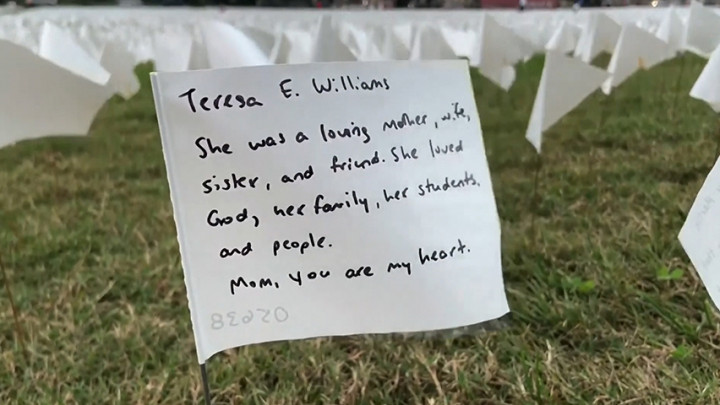 Teresa E. Williams
She was a loving mother, wife,
sister, and friend. She loved
God, her family, her students,
and people.
Mom, you are my heart.